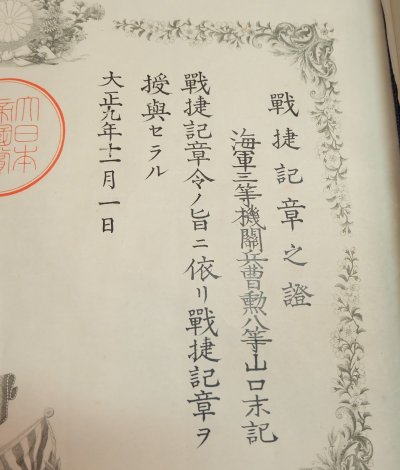 戰捷記章之證
海軍三等機關兵曹勲八等山口末記
戰捷記章令ノ旨ニ依リ戰捷記章ヲ
授與セラル
大正九年十一月一日
大日本